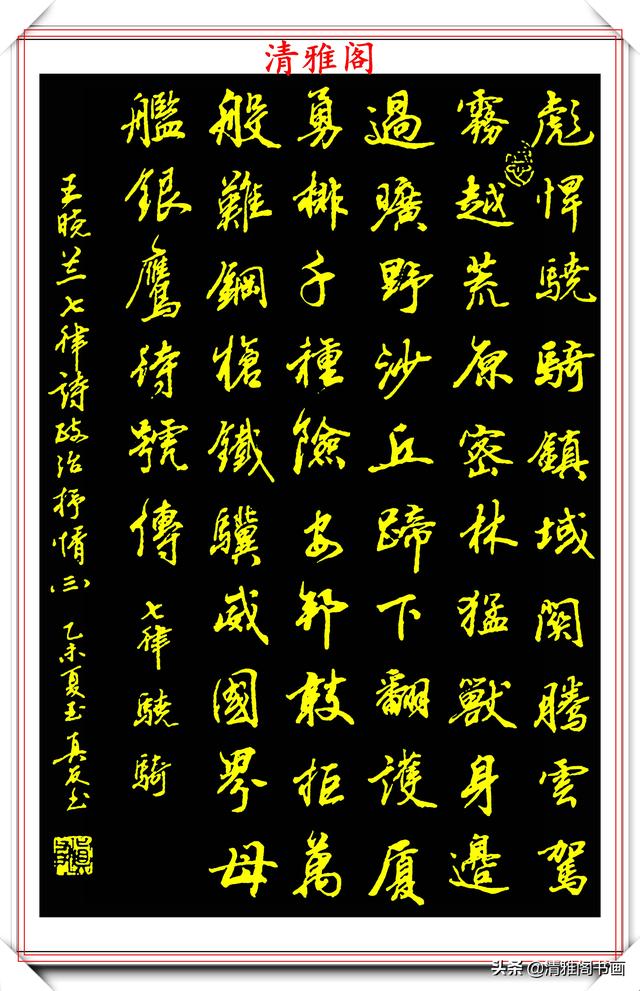 清雅阁
彪悍驍騎鎮域関騰雲駕
霧越荒原密林猛獸身邊
過曠野沙丘蹄下翻護厦
勇排千種險安邦敢拒萬
般難鋼槍鐵驥威國界母
艦銀鷹待號傳 七律 驍騎
王晓兰七律詩政治抒情(三) 乙未夏玉真友书
头条@清雅阁书画